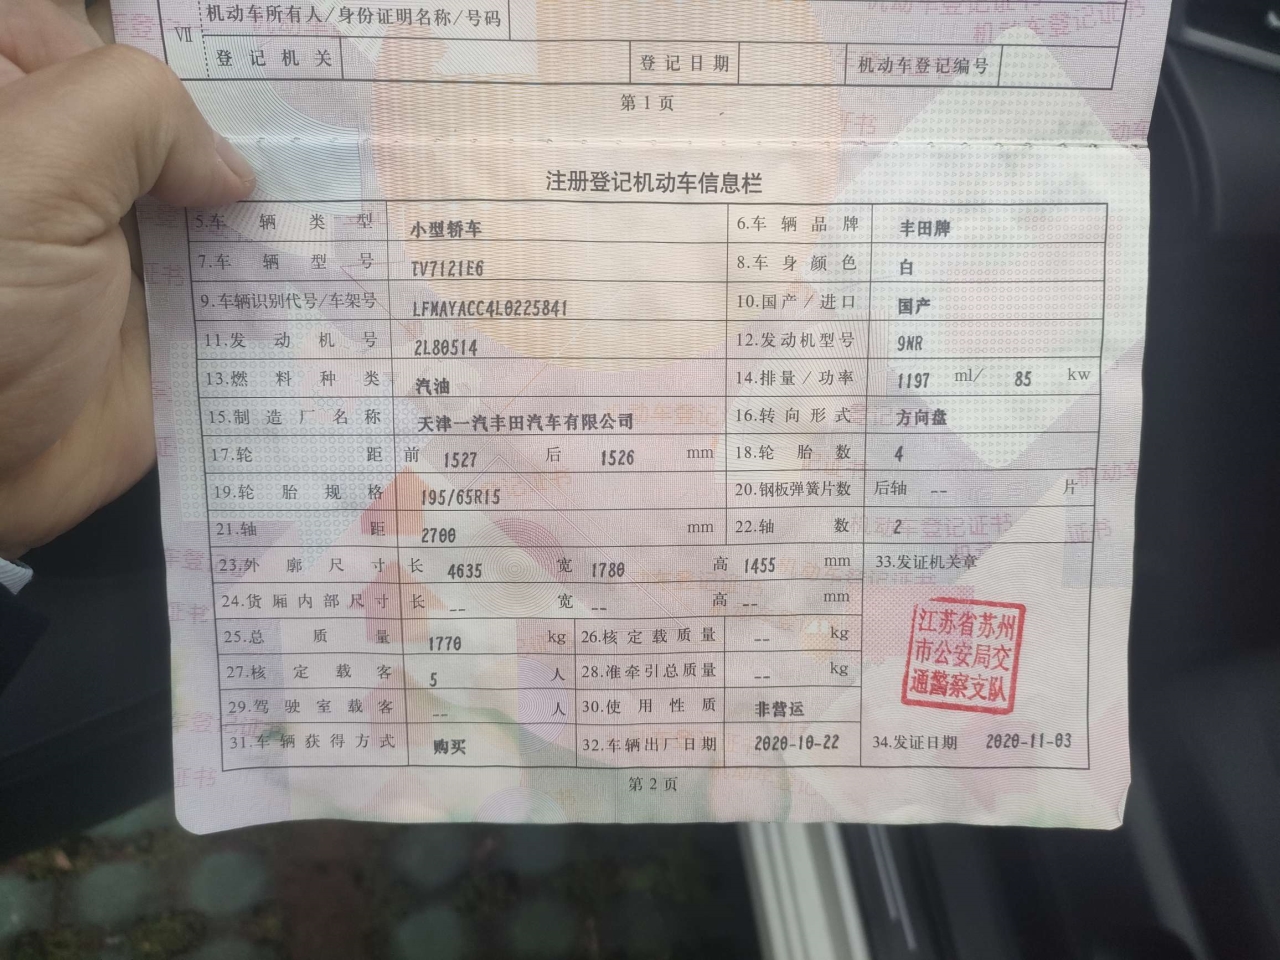 机动车所有人/身份证明名称/号码
Ⅶ
登记机关 登记日期 机动车登记编号
第 1 页
注册登记机动车信息栏
5.车辆类型 小型轿车 6.车辆品牌 丰田牌
7.车辆型号 TV7121E6 8.车身颜色 白
9.车辆识别代号/车架号 LFMAYACC4L0225841 10.国产/进口 国产
11.发动机号 2L80514 12.发动机型号 9NR
13.燃料种类 汽油 14.排量/功率 1197 ml/ 85 kw
15.制造厂名称 天津一汽丰田汽车有限公司 16.转向形式 方向盘
17.轮距 前 1527 后 1526 mm 18.轮胎数 4
19.轮胎规格 195/65R15 20.钢板弹簧片数 后轴 -- 片
21.轴距 2700 mm 22.轴数 2
23.外廓尺寸 长 4635 宽 1780 高 1455 mm 33.发证机关章
24.货厢内部尺寸 长 -- 宽 -- 高 -- mm
25.总质量 1770 kg 26.核定载质量 -- kg
27.核定载客 5 人 28.准牵引总质量 -- kg
29.驾驶室载客 -- 人 30.使用性质 非营运
31.车辆获得方式 购买 32.车辆出厂日期 2020-10-22 34.发证日期 2020-11-03
江苏省苏州
市公安局交
通警察支队
第 2 页